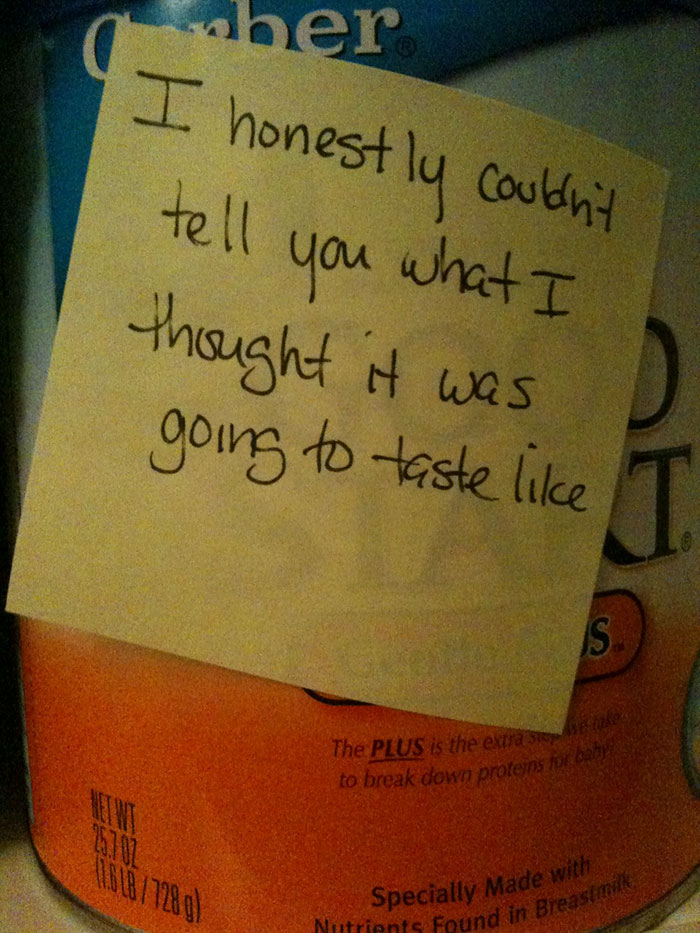 Gerber®
I honestly couldn't
tell you what I
thought it was
going to taste like
The PLUS is the extra step we take
to break down proteins for baby
NET WT
25.7 OZ
(1.6 LB / 728 g)
Specially Made with
Nutrients Found in Breastmilk